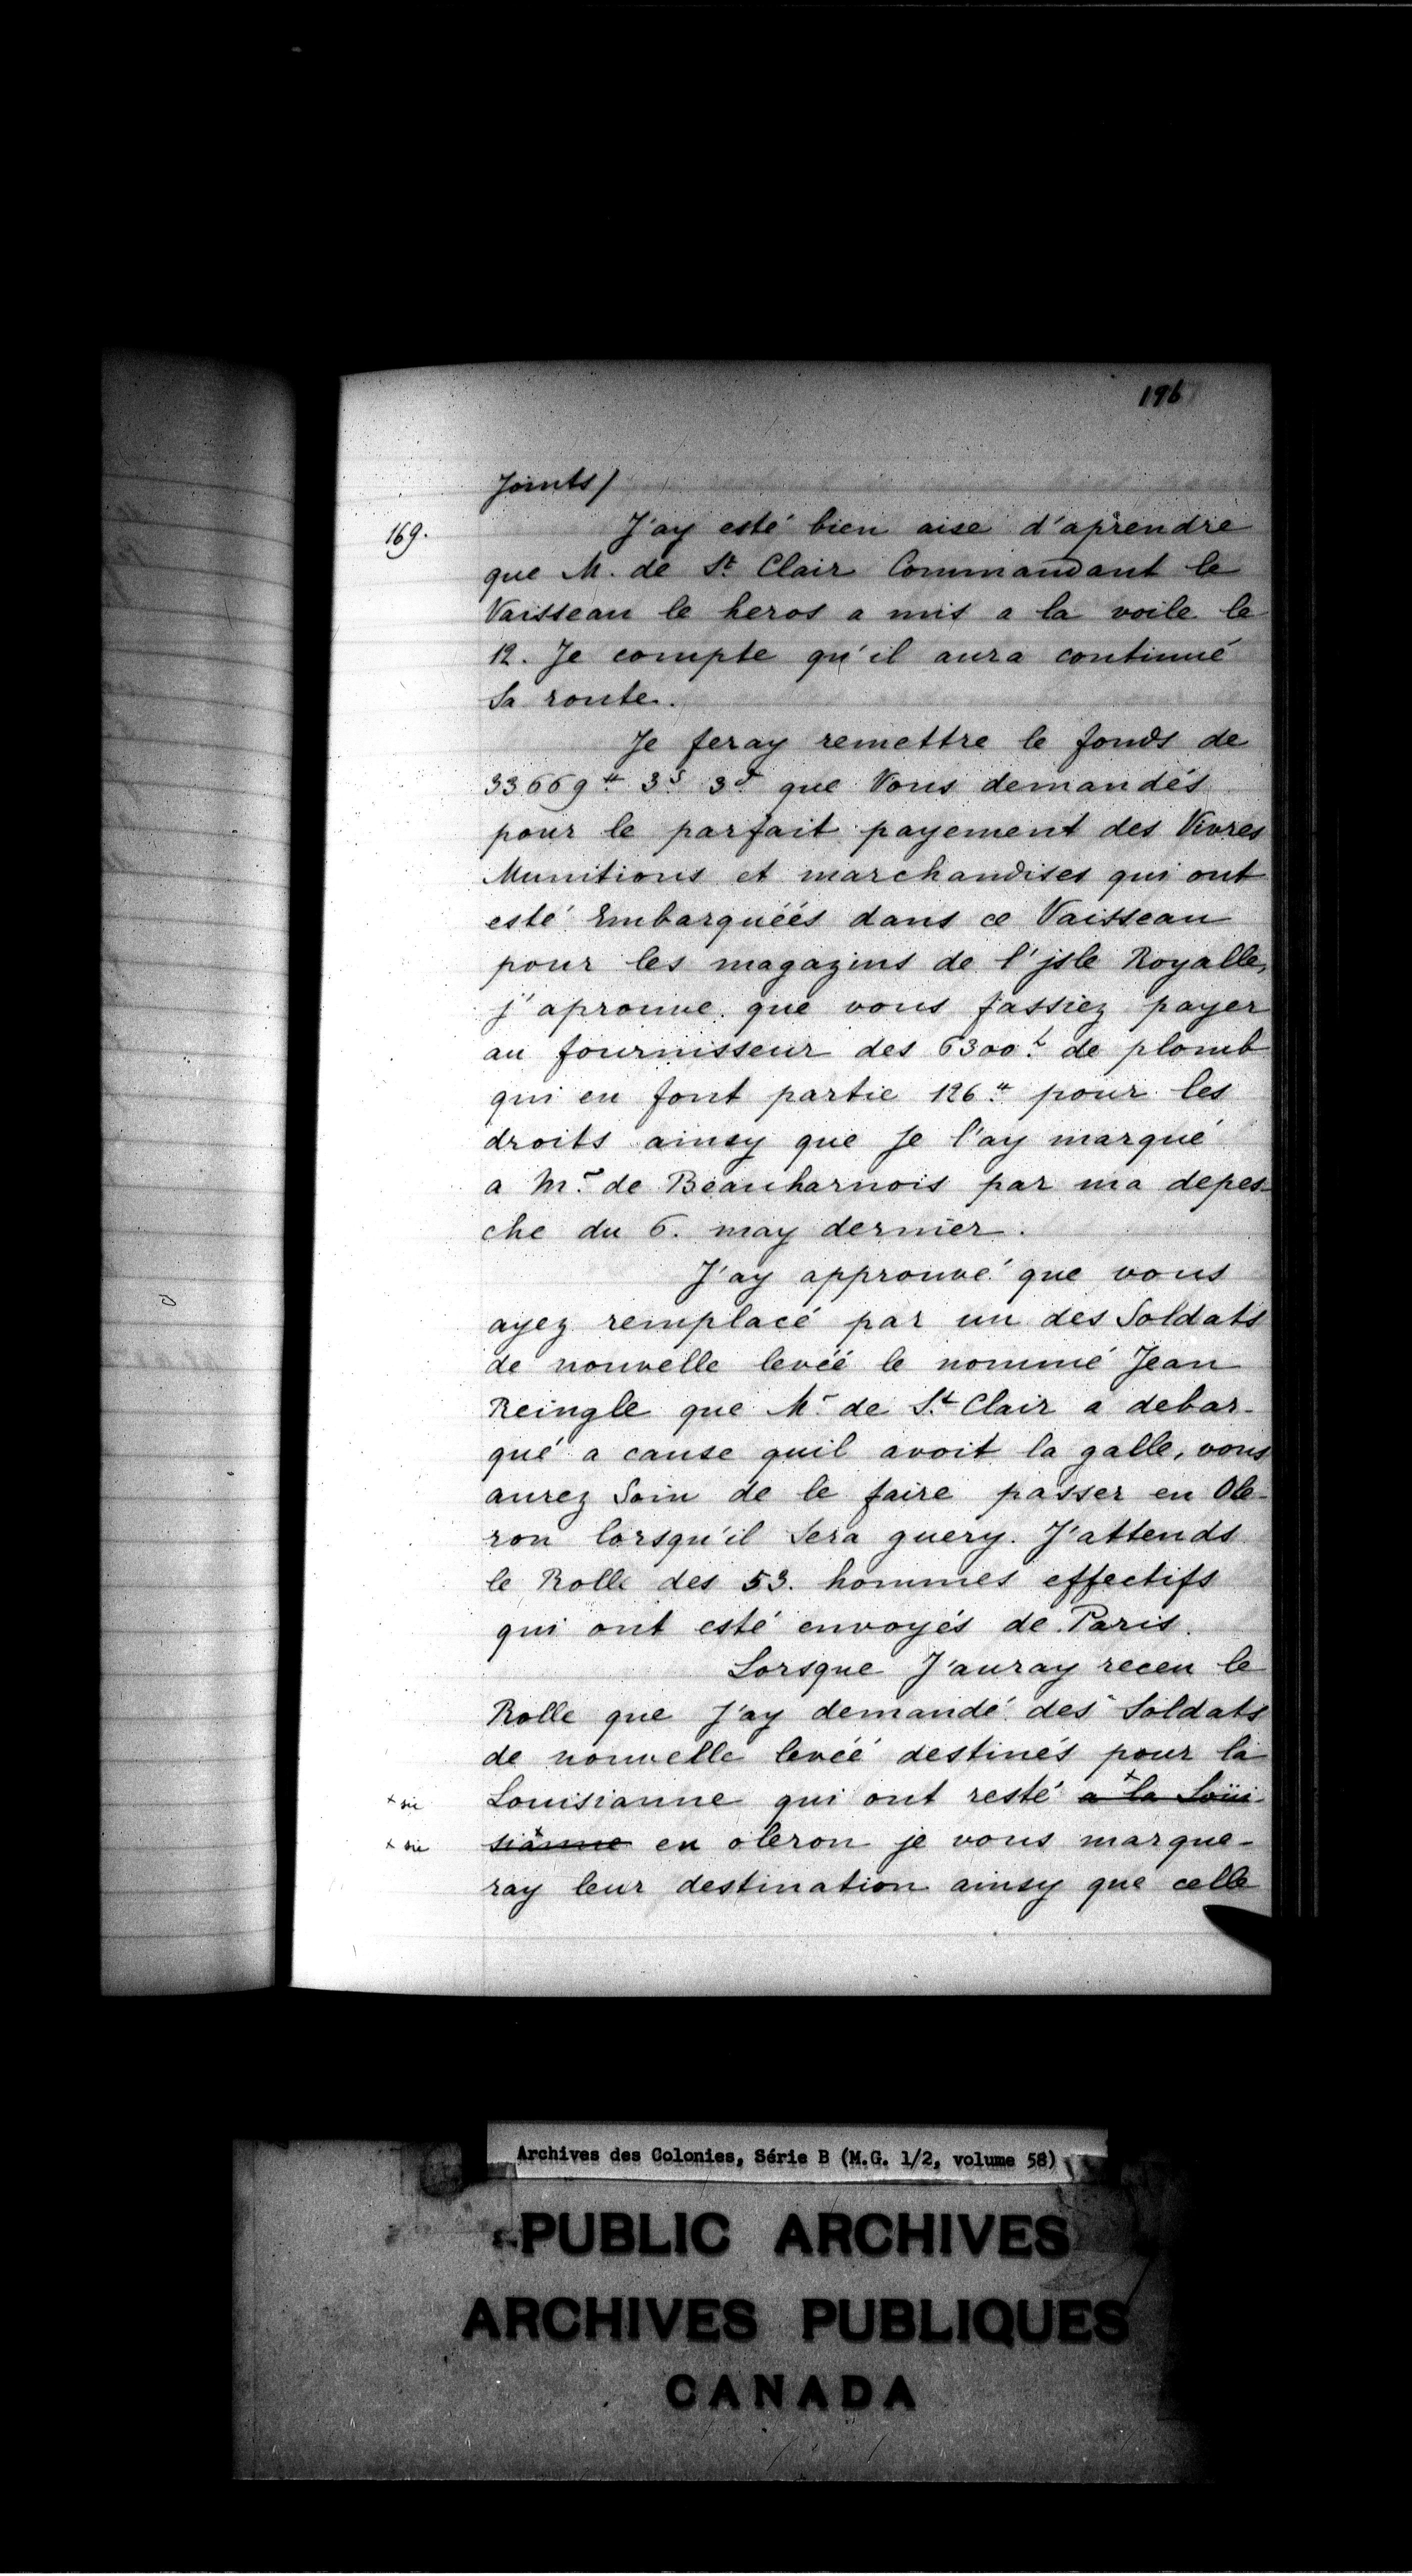 196
Joints/
169.
J'ay esté bien aise d'aprendre
que M. de St. Clair Commandant le
Vaisseau le heros a mis a la voile le
12. Je compte qu'il aura continué
Sa route.
Je feray remettre le fonds de
33669# 3s 3d que Vous demandés
pour le parfait payement des Vivres
Munitions et marchandises qui ont
esté Embarquéés dans ce Vaisseau
pour les magazins de l'jsle Royalle,
j'aprouve que vous fassiez payer
au fournisseur des 6300l de plomb
qui en font partie 126# pour les
droits ainsy que Je l'ay marqué
a Mr. de Beauharnois par ma depes-
che du 6. may dernier.
J'ay approuvé que vous
ayez remplacé par un des Soldats
de nouvelle levéé le nommé Jean
Reingle que Mr de St. Clair a debar-
qué a cause quil avoit la galle, vous
aurez Soin de le faire passer en Ole-
ron lorsqu'il Sera guery. J'attends
le Rolle des 53. hommes effectifs
qui ont esté envoyés de Paris.
Lorsque J'auray receu le
Rolle que J'ay demandé des Soldats
de nouvelle levéé destinés pour la
+ sic Louisianne qui ont resté a + la Loüi-
+ sic sia+nne en oleron je vous marque-
ray leur destination ainsy que celle
Archives des Colonies, Série B (M.G. 1/2, volume 58)
PUBLIC ARCHIVES
ARCHIVES PUBLIQUES
CANADA